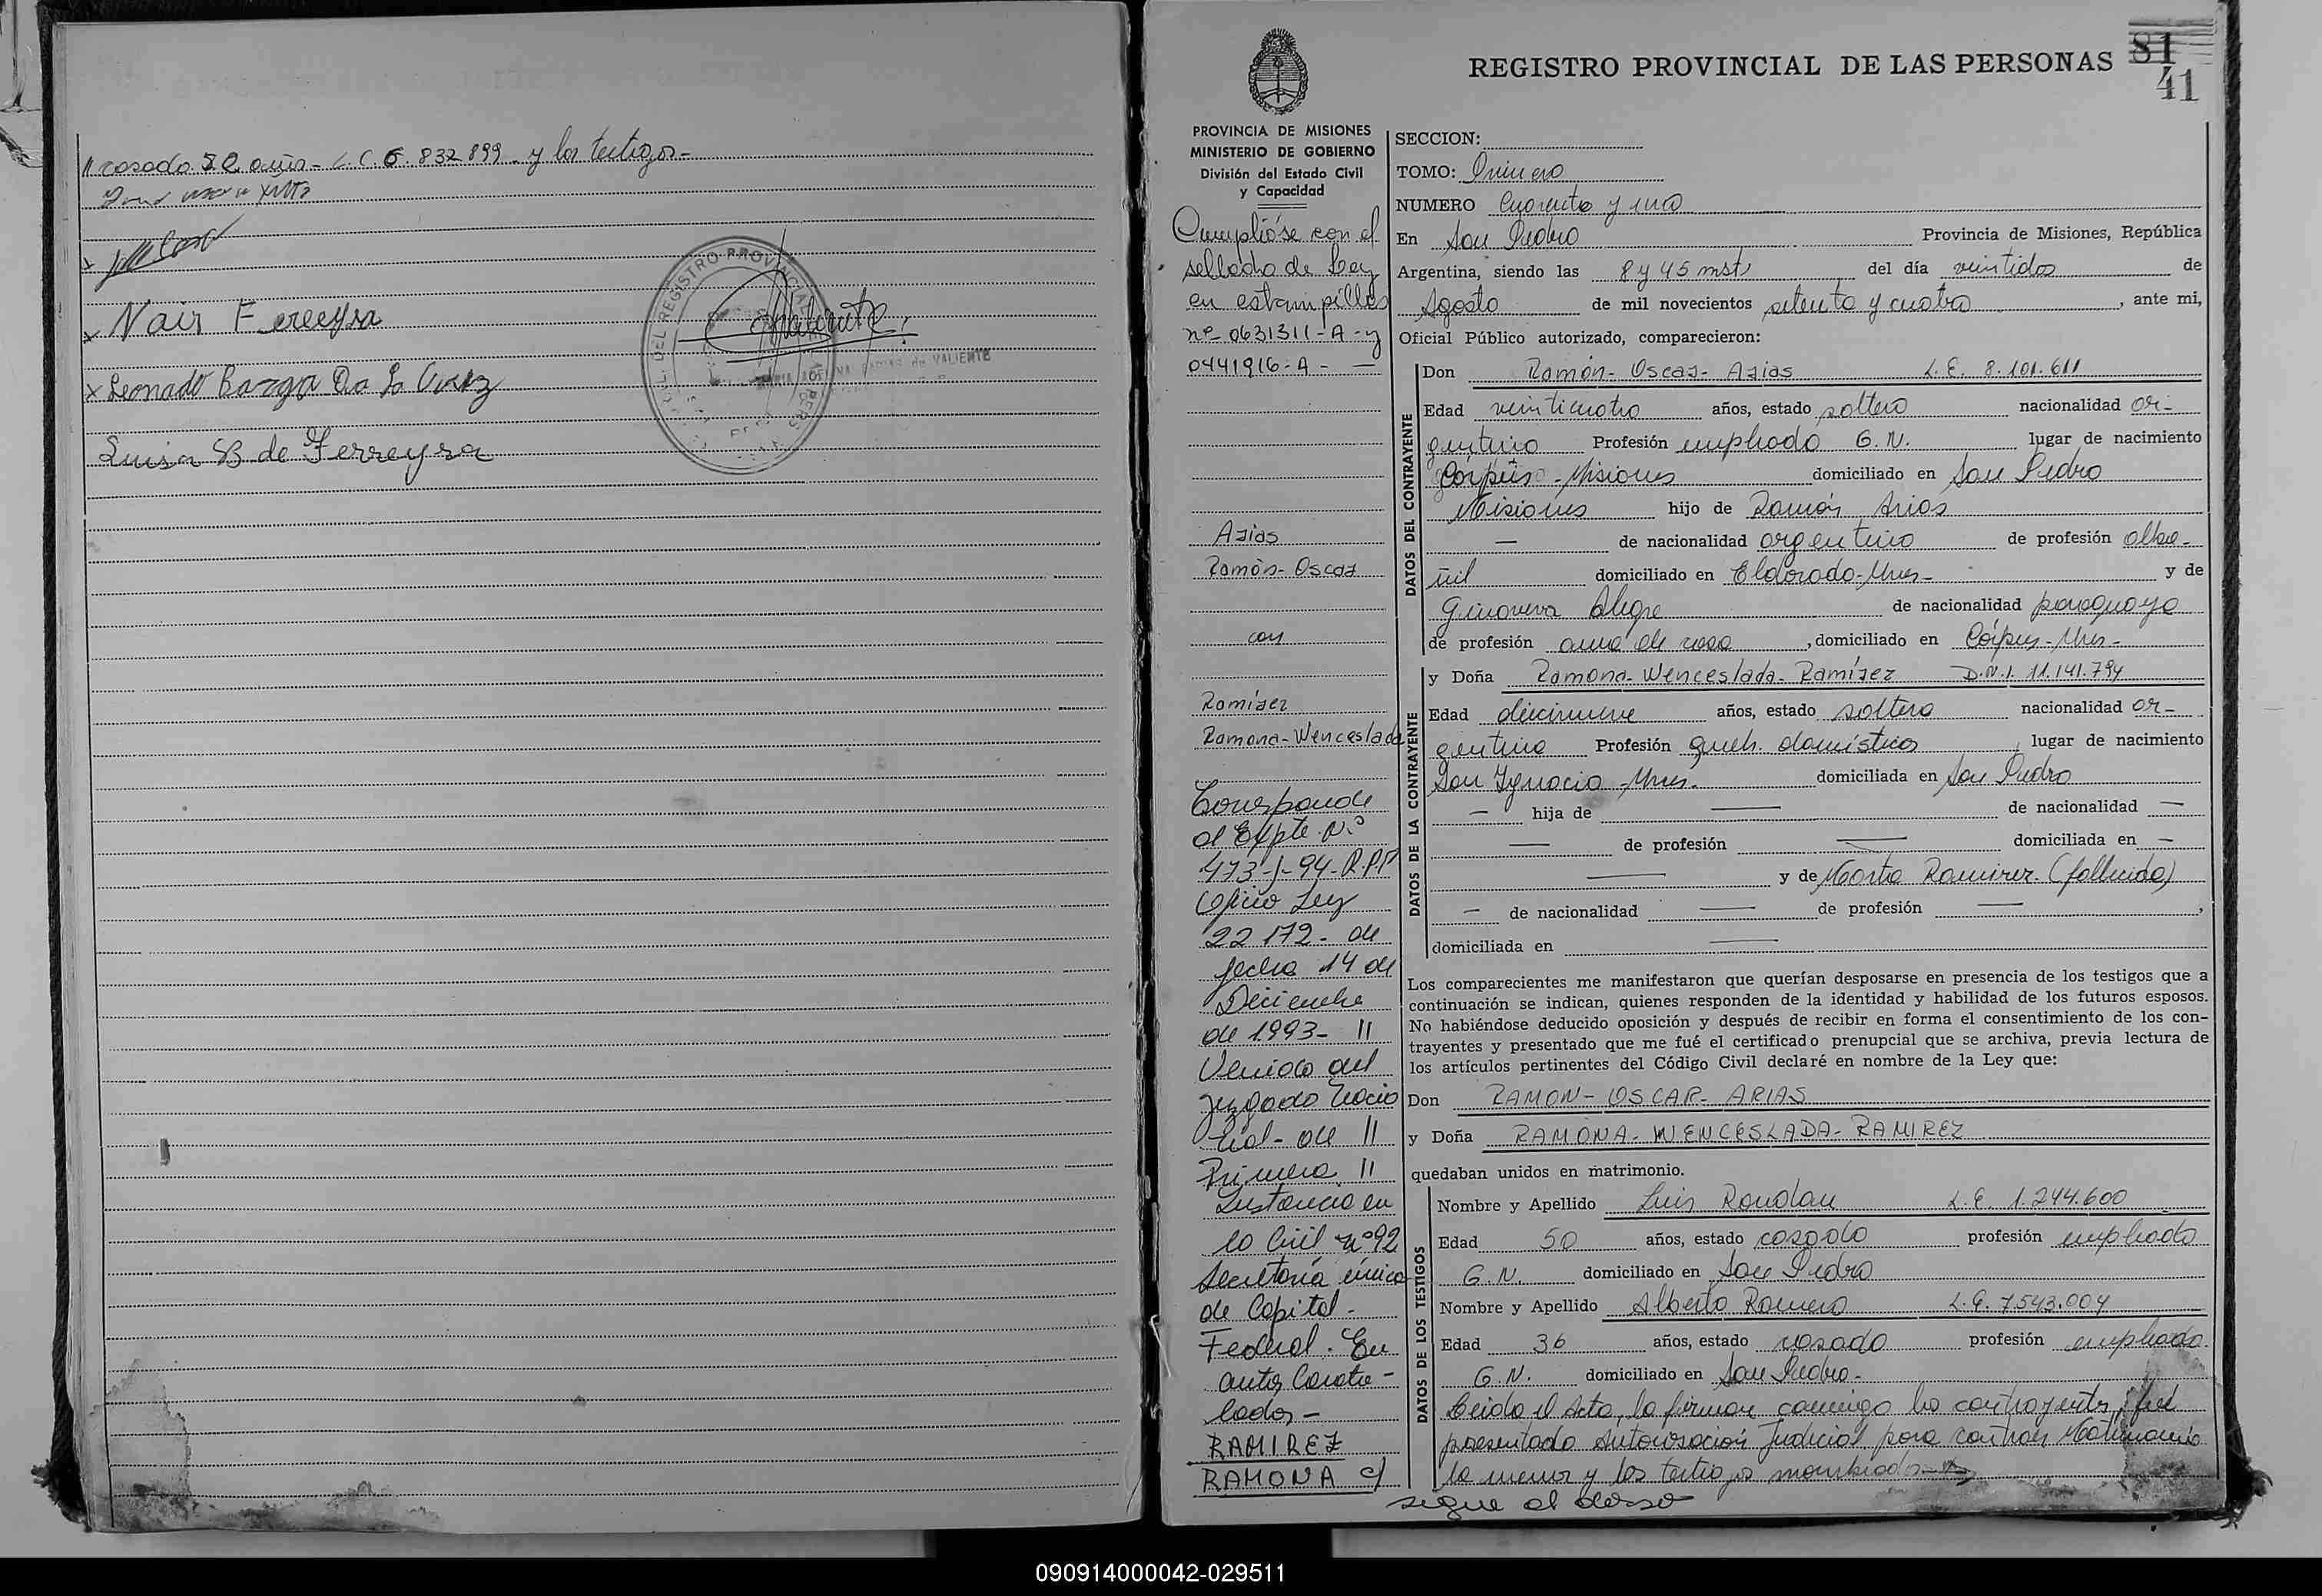 // casado 52 años - L.C. 6.832.899 - y los testigos -
x Nair Fereyra
x Leonado Barga Da La Cruz
Luisa B de Ferreyra
DEL REGISTRO PROVINCIAL
de VALIENTE
81
41
REGISTRO PROVINCIAL DE LAS PERSONAS
PROVINCIA DE MISIONES
MINISTERIO DE GOBIERNO
División del Estado Civil
y Capacidad
Cumplióse con el
sellado de Ley
en estampillas
nº 0631311-A-y
0441916-A - —
Arias
Ramón-Oscar
con
Ramírez
Ramona-Wenceslada
Corresponde
al Expte. Nº
473-J-94-R.P.P
Oficio Ley
22172- de
fecha 14 de
Diciembre
de 1.993- //
Venido del
Juzgado Nacio
nal- de //
Primera //
Instancia en
lo Civil nº 92
Secretaría única
de Capital-
Federal. En
autos Caratu-
lados-
RAMIREZ
RAMONA c/
SECCION:
TOMO: Primero
NUMERO Cuarenta y uno
En San Pedro Provincia de Misiones, República
Argentina, siendo las 8 y 45 mts del día veintidos de
Agosto de mil novecientos setenta y cuatro, ante mi,
Oficial Público autorizado, comparecieron:
DATOS DEL CONTRAYENTE
Don Ramón-Oscar-Arias L.E. 8.101.611
Edad veinticuatro años, estado soltero nacionalidad ar-
gentino Profesión empleado G.N. lugar de nacimiento
Corpus-Misiones domiciliado en San Pedro
Misiones hijo de Ramón Arias
— de nacionalidad argentino de profesión alba-
ñil domiciliado en Eldorado-Mnes- y de
Ginoveva Alegre de nacionalidad paraguaya
de profesión ama de casa, domiciliado en Corpus-Mnes-
DATOS DE LA CONTRAYENTE
y Doña Ramona-Wenceslada-Ramírez D.N.I. 11.141.794
Edad diecinueve años, estado soltera nacionalidad ar-
gentina Profesión queh. domésticos lugar de nacimiento
San Ignacio-Mnes. domiciliada en San Pedro
— hija de — de nacionalidad —
— de profesión — domiciliada en —
— y de Marta Ramirez. (fallecida)
— de nacionalidad — de profesión —,
domiciliada en —
Los comparecientes me manifestaron que querían desposarse en presencia de los testigos que a
continuación se indican, quienes responden de la identidad y habilidad de los futuros esposos.
No habiéndose deducido oposición y después de recibir en forma el consentimiento de los con-
trayentes y presentado que me fué el certificado prenupcial que se archiva, previa lectura de
los artículos pertinentes del Código Civil declaré en nombre de la Ley que:
Don RAMON-OSCAR-ARIAS
y Doña RAMONA-WENCESLADA-RAMIREZ
quedaban unidos en matrimonio.
DATOS DE LOS TESTIGOS
Nombre y Apellido Luis Roudan L.E. 1.244.600
Edad 50 años, estado casado profesión empleado
G.N. domiciliado en San Pedro
Nombre y Apellido Alberto Romero L.E. 7.543.004
Edad 36 años, estado casado profesión empleado
G.N. domiciliado en San Pedro-
Leida el Acta, la firman conmigo los contrayentes, fué
presentada Autorisación Judicial para contraer Matrimonio
la menor y los testigos nombrados
sigue al dorso
090914000042-029511